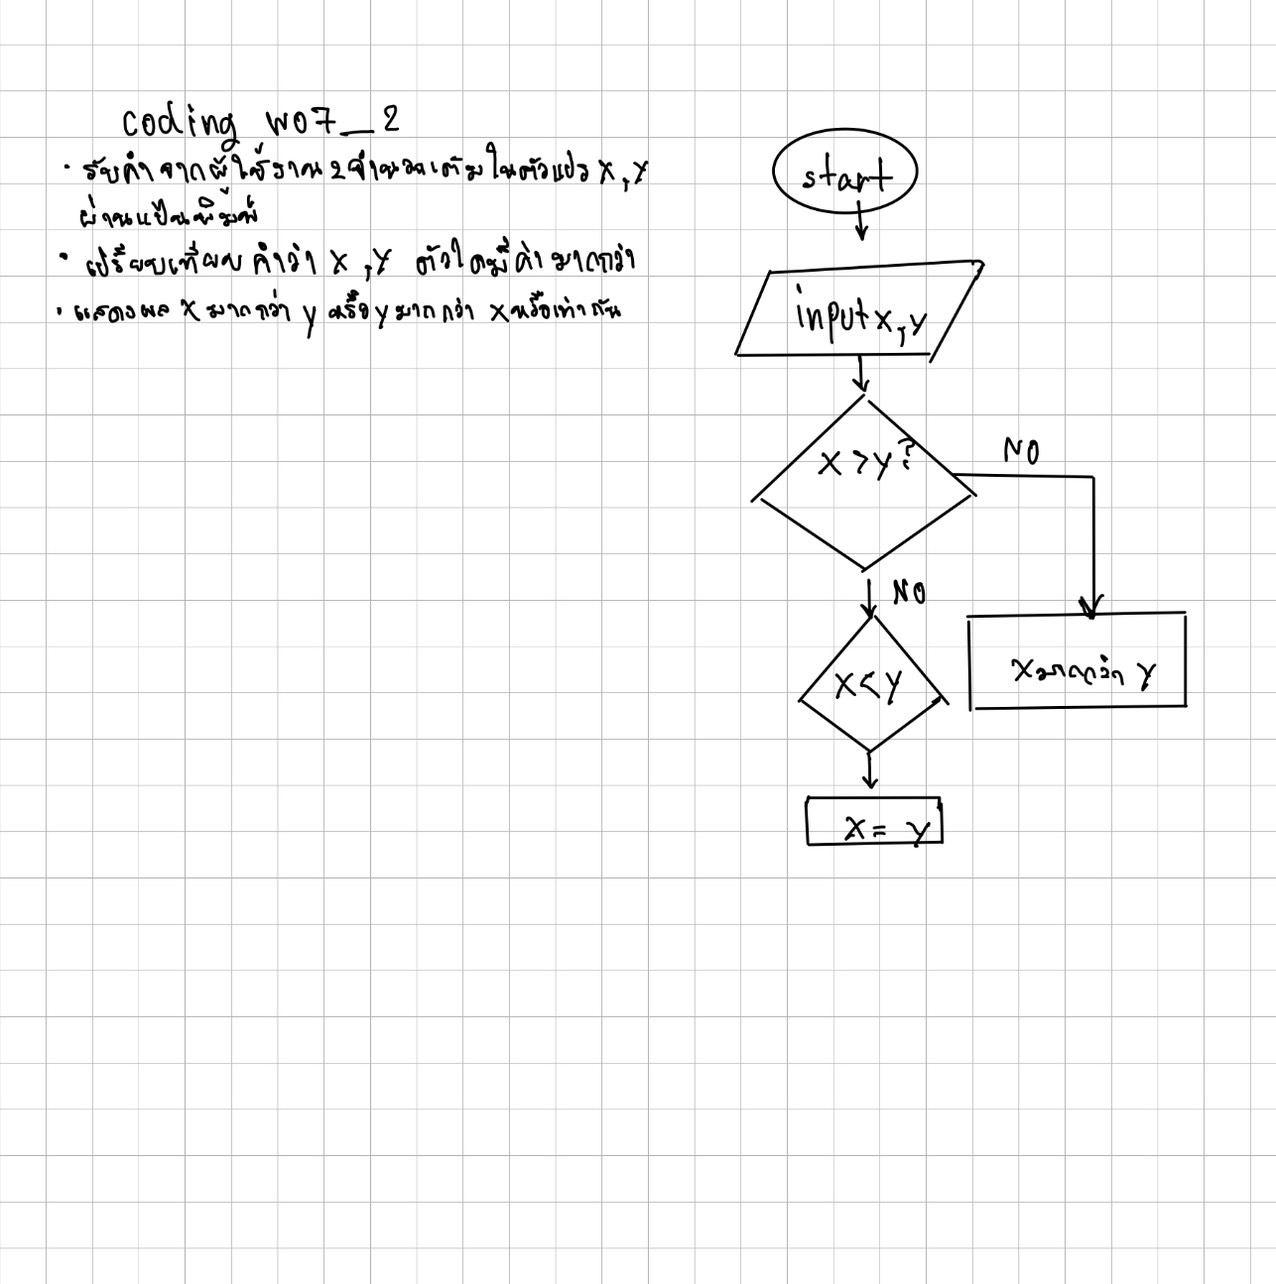 coding w07_2
· รับค่าจากผู้ใช้งาน 2 จำนวนเต็มในตัวแปร X, Y
ผ่านแป้นพิมพ์
· เปรียบเทียบค่าว่า X, Y ตัวใดมีค่ามากกว่า
· แสดงผล X มากกว่า y หรือ y มากกว่า X หรือเท่ากัน
start
input x, y
X > y ?
NO
NO
X < y
X มากกว่า y
X = y